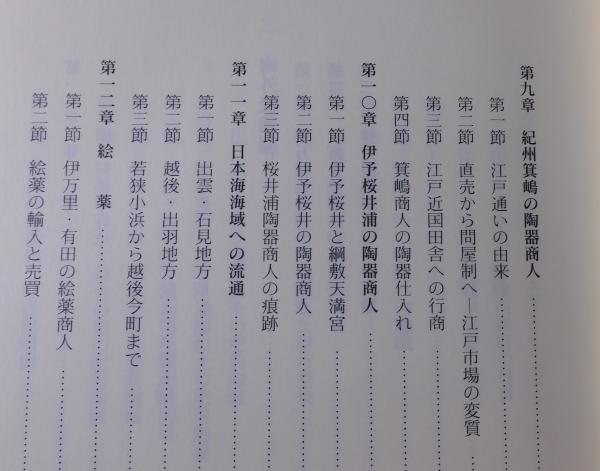 第九章　紀州箕嶋の陶器商人……
第一節　江戸通いの由来……
第二節　直売から問屋制へ―江戸市場の変質……
第三節　江戸近国田舎への行商……
第四節　箕嶋商人の陶器仕入れ……
第一〇章　伊予桜井浦の陶器商人……
第一節　伊予桜井と綱敷天満宮……
第二節　伊予桜井の陶器商人……
第三節　桜井浦陶器商人の痕跡……
第一一章　日本海海域への流通……
第一節　出雲・石見地方……
第二節　越後・出羽地方……
第三節　若狭小浜から越後今町まで……
第一二章　絵　薬……
第一節　伊万里・有田の絵薬商人……
第二節　絵薬の輸入と売買……